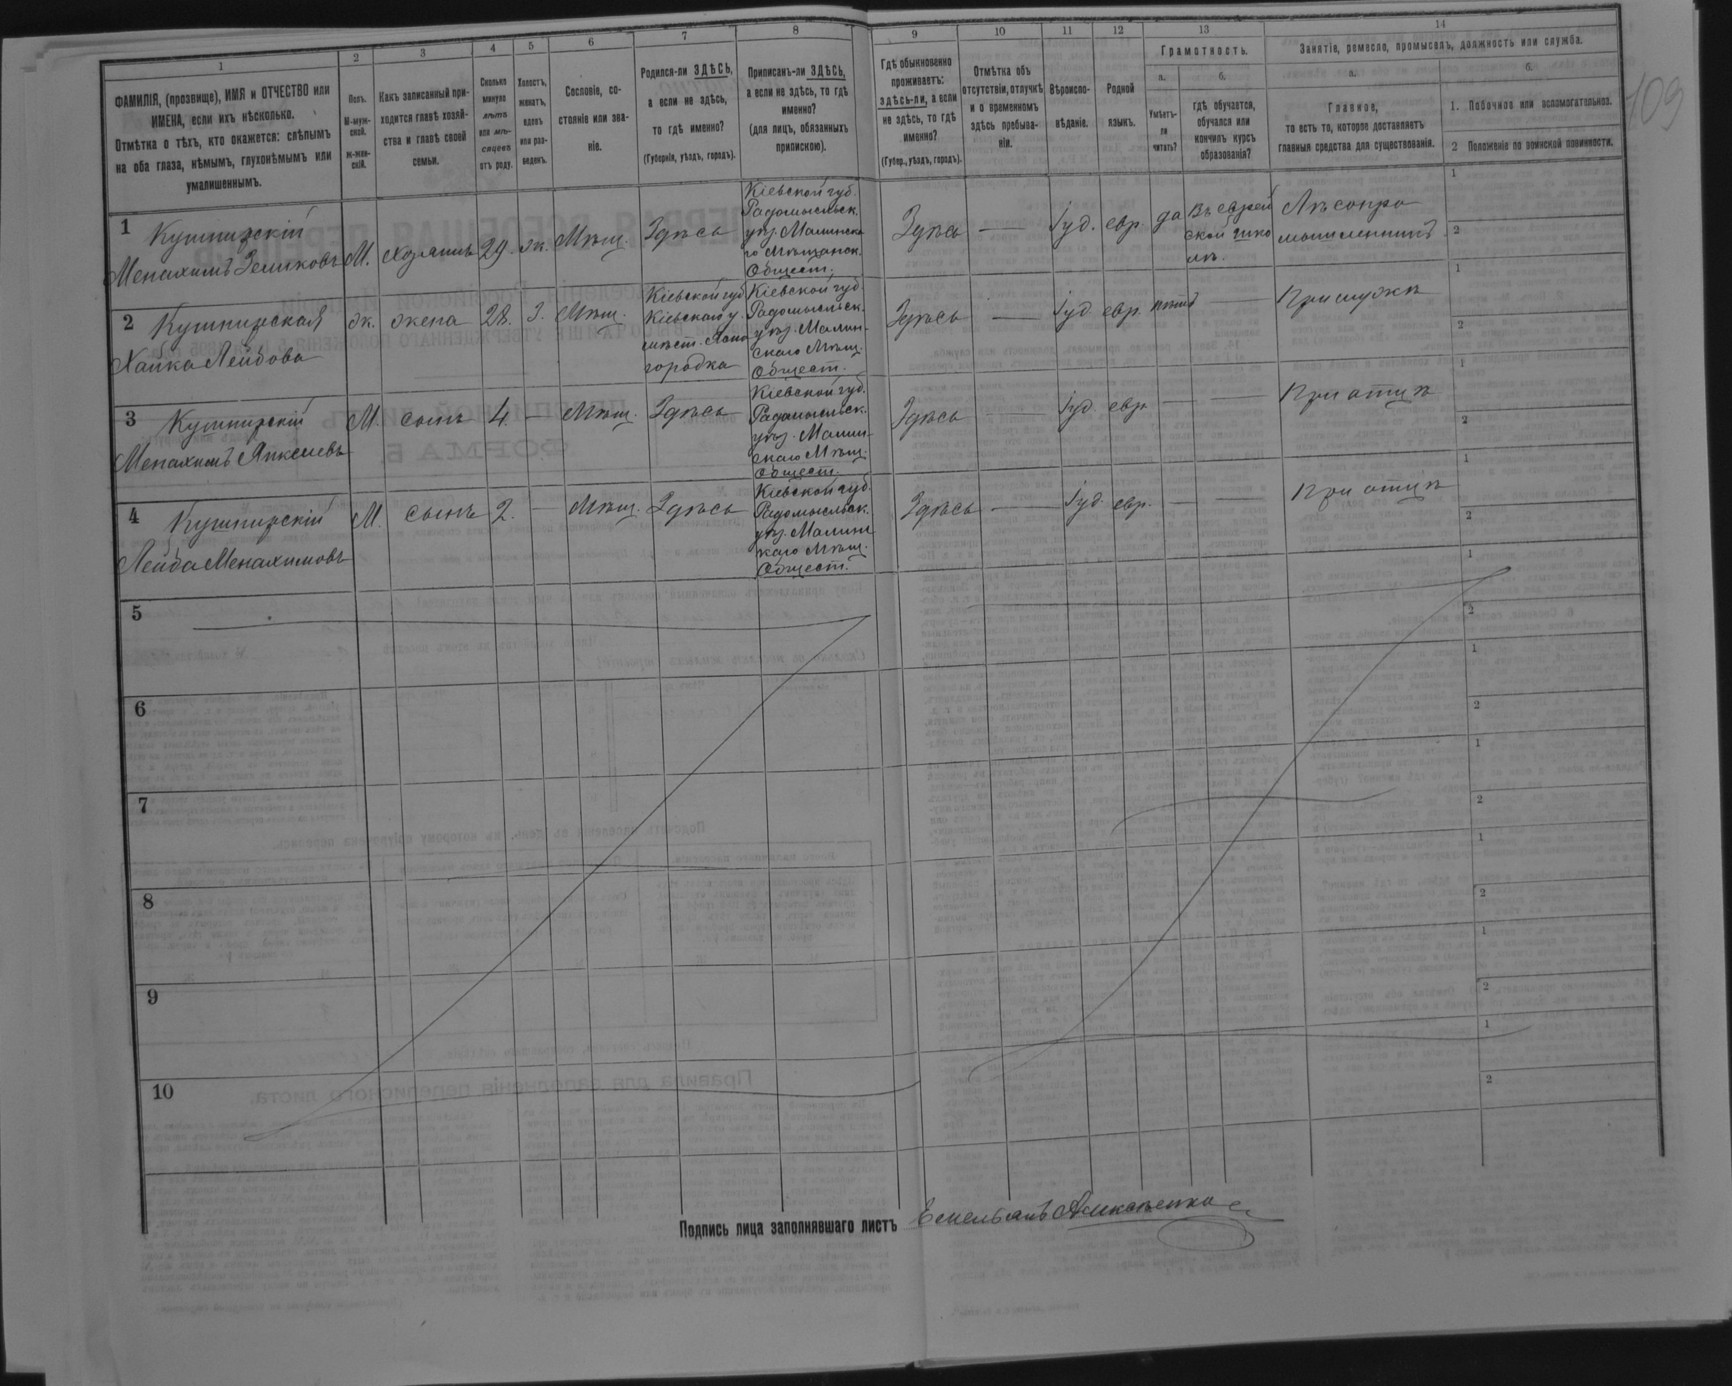 1
2
3
4
5
6
7
8
9
10
11
12
13
14
ФАМИЛІЯ, (прозвище), ИМЯ и ОТЧЕСТВО или
ИМЕНА, если ихъ нѣсколько.
Отмѣтка о тѣхъ, кто окажется: слѣпымъ
на оба глаза, нѣмымъ, глухонѣмымъ или
умалишеннымъ.
Полъ.
М-муж-
ской.
Ж-жен-
скій.
Какъ записанный при-
ходится главѣ хозяй-
ства и главѣ своей
семьи.
Сколько
минуло
лѣтъ
или мѣ-
сяцевъ
отъ роду.
Холостъ,
женатъ,
вдовъ
или раз-
веденъ.
Сословіе, со-
стояніе или зва-
ніе.
Родился-ли ЗДѢСЬ,
а если не здѣсь,
то гдѣ именно?
(Губернія, уѣздъ, городъ).
Приписанъ-ли ЗДѢСЬ,
а если не здѣсь, то гдѣ
именно?
(для лицъ, обязанныхъ
припискою).
Гдѣ обыкновенно
проживаетъ:
здѣсь-ли, а если
не здѣсь, то гдѣ
именно?
(Губер., уѣздъ, городъ).
Отмѣтка объ
отсутствіи, отлучкѣ
и о временномъ
здѣсь пребыва-
ніи.
Вѣроиспо-
вѣданіе.
Родной
языкъ.
Грамотность.
а.
Умѣетъ-
ли
читать?
б.
гдѣ обучается,
обучался или
кончилъ курсъ
образованія?
Занятіе, ремесло, промыселъ, должность или служба.
а.
Главное,
то есть то, которое доставляетъ
главныя средства для существованія.
б.
1. Побочное или вспомогательное.
2 Положеніе по воинской повинности.
109
1 Кушнирскій
Менахимъ Зеликовъ
М.
хозяинъ
29.
ж.
Мѣщ.
Здѣсь
Кіевской губ.
Радомысльск.
уѣз. Малинска
го Мѣщанск.
Общест.
Здѣсь
—
Іуд.
евр.
да
Въ еврей
ской шко
лѣ.
Лѣсопро
мышленникъ
1
2
2 Кушнирская
Хайка Лейбова
ж.
жена
28.
З.
Мѣщ.
Кіевской губ.
Кіевскаго у.
мѣст. Ясно
городка
Кіевской губ.
Радомысльск.
уѣз. Малин-
скаго Мѣщ.
Общест.
Здѣсь
—
Іуд.
евр.
нѣтъ
—
При мужѣ
1
2
3 Кушнирскій
М.
сынъ
4.
—
Мѣщ.
Здѣсь
Кіевской губ.
Радомысльск.
уѣз. Малин-
скаго Мѣщ.
Общест.
Здѣсь
—
Іуд.
евр.
—
—
При отцѣ
1
2
4 Кушнирскій
Лейба Менахимовъ
М.
сынъ
2.
—
Мѣщ.
Здѣсь
Кіевской губ.
Радомысльск.
уѣз. Малин
скаго Мѣщ.
Общест.
Здѣсь
—
Іуд.
евр.
—
—
При отцѣ
1
2
5
1
2
6
1
2
7
1
2
8
1
2
9
1
2
10
1
2
Подпись лица заполнявшаго листъ